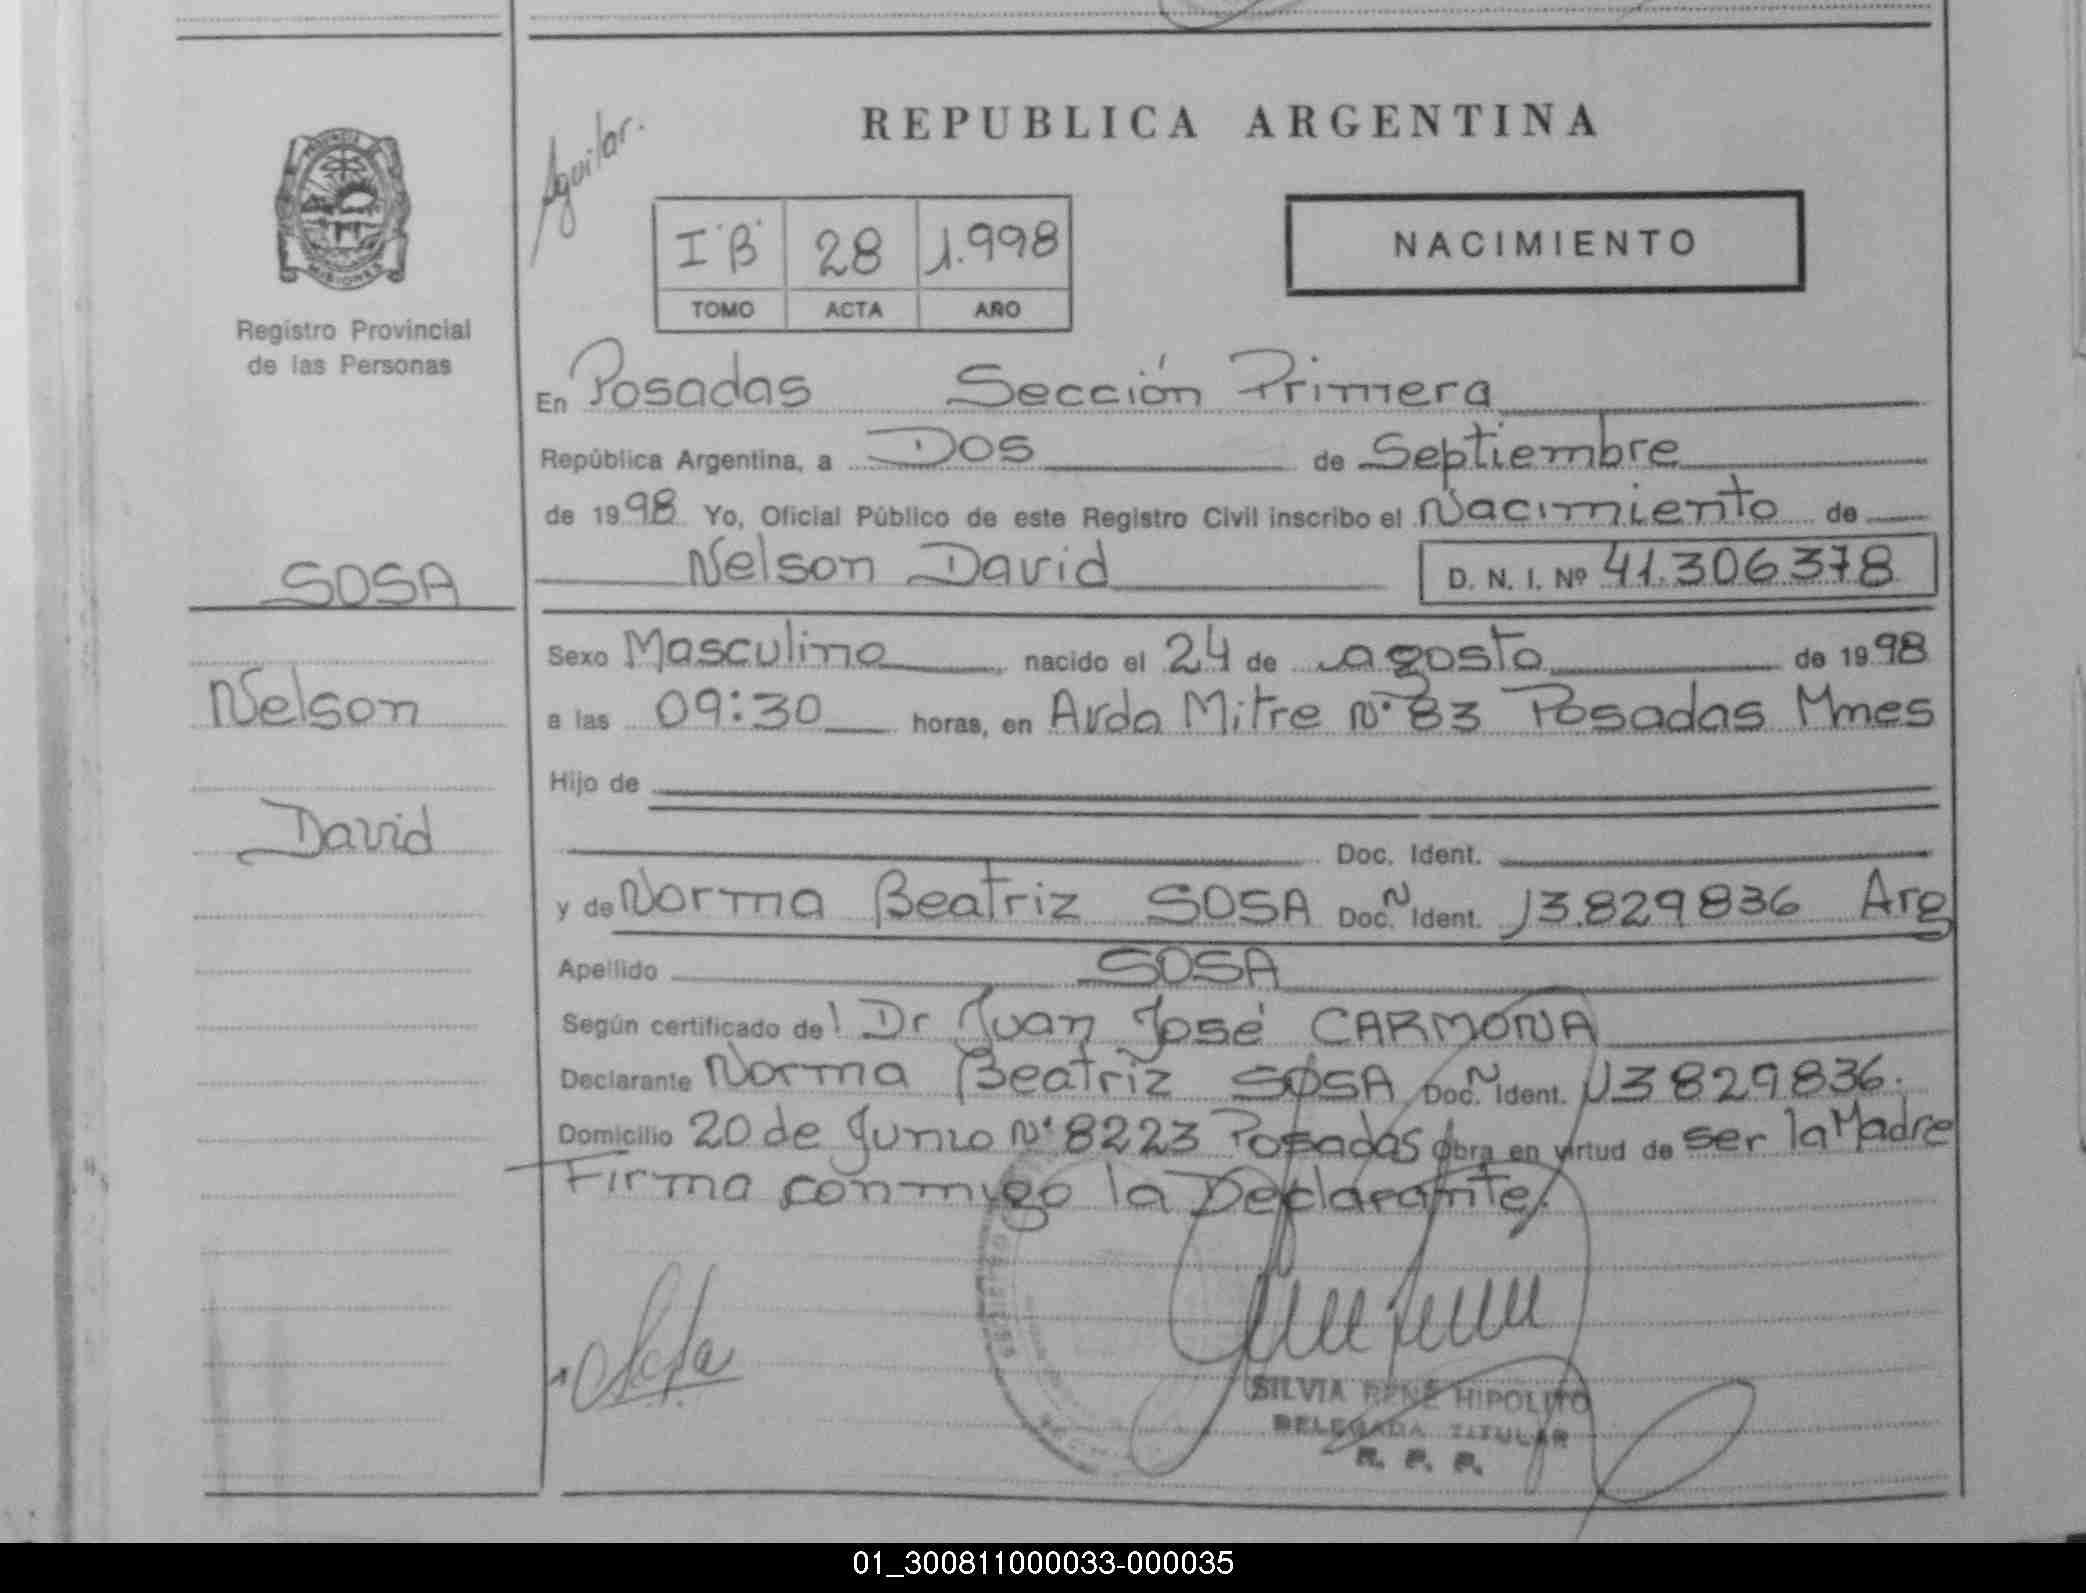 Aguilar.
REPUBLICA ARGENTINA
PROVINCIA DE
MISIONES
Registro Provincial
de las Personas
I "B" 28 1.998
TOMO ACTA AÑO
NACIMIENTO
En Posadas Sección Primera
República Argentina, a Dos de Septiembre
de 1998 Yo, Oficial Público de este Registro Civil inscribo el Nacimiento de
Nelson David D. N. I. Nº 41.306378
SOSA
Nelson
David
Sexo Masculino nacido el 24 de agosto de 1998
a las 09:30 horas, en Avda Mitre Nº 83 Posadas Mnes
Hijo de
Doc. Ident.
y de Norma Beatriz SOSA Doc. N Ident. 13.829836 Arg
Apellido SOSA
Según certificado del Dr Juan José CARMONA
Declarante Norma Beatriz SOSA Doc. N Ident. 13829836.
Domicilio 20 de Junio Nº 8223 Posadas obra en virtud de ser la Madre
Firma conmigo la Declarante.
SILVIA RENE HIPOLITO
DELEGADA TITULAR
R. P. P.
01_300811000033-000035